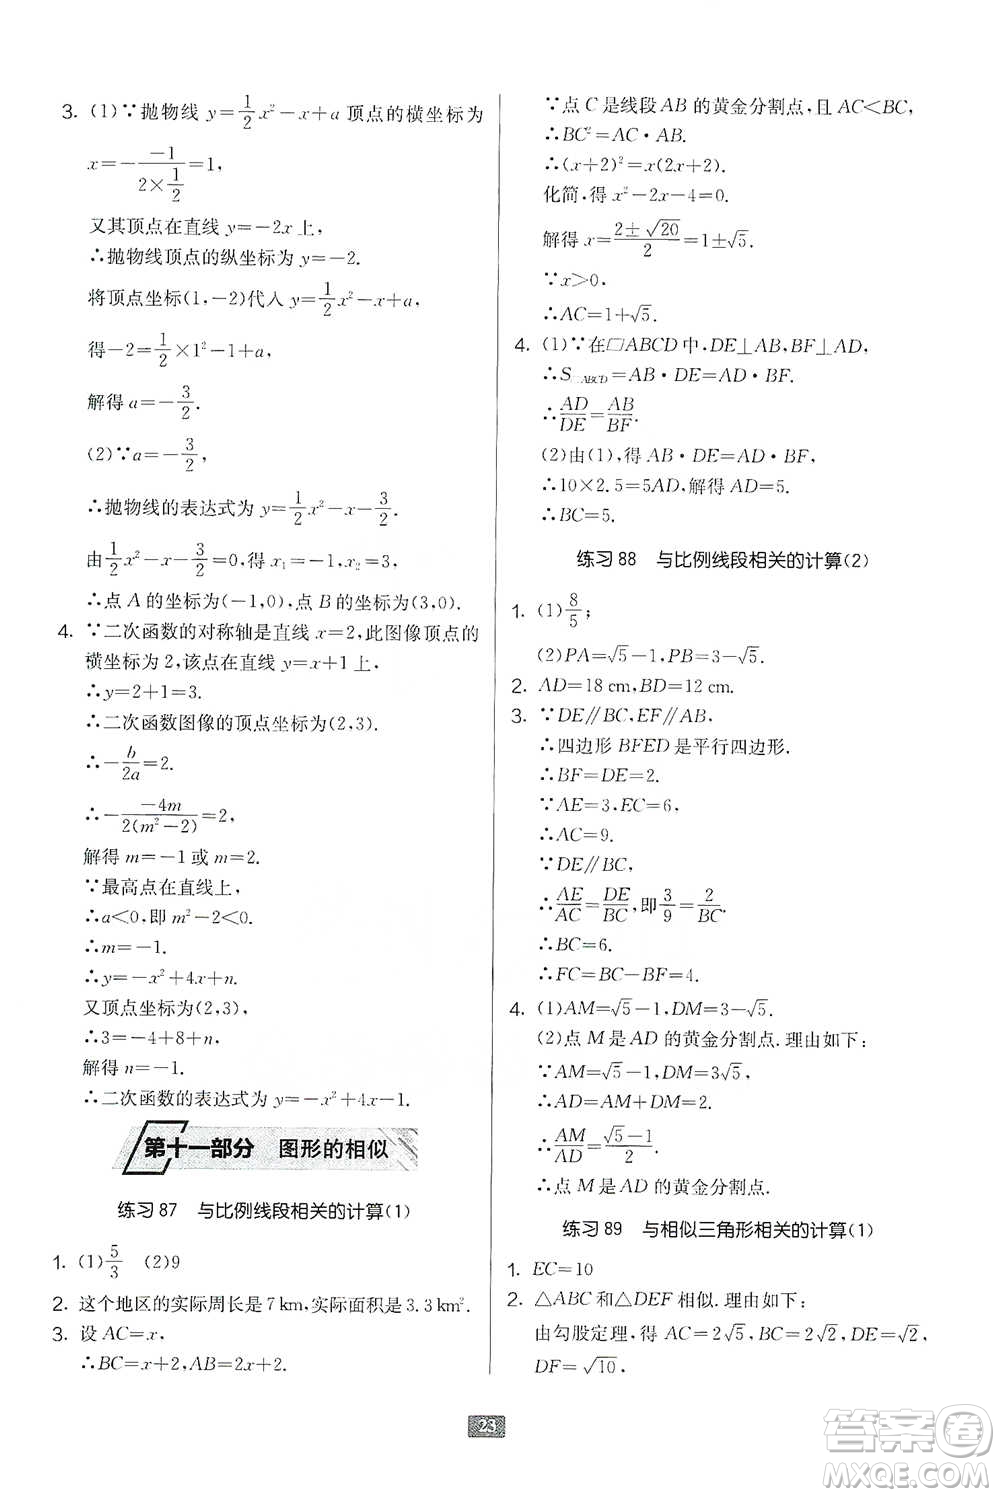 3. (1)∵抛物线 y=1/2x²-x+a 顶点的横坐标为
x=-(-1)/(2×1/2)=1,
又其顶点在直线 y=-2x 上,
∴抛物线顶点的纵坐标为 y=-2.
将顶点坐标(1,-2)代入 y=1/2x²-x+a,
得-2=1/2×1²-1+a,
解得 a=-3/2.
(2)∵a=-3/2,
∴抛物线的表达式为 y=1/2x²-x-3/2.
由1/2x²-x-3/2=0,得 x₁=-1,x₂=3.
∴点 A 的坐标为(-1,0),点 B 的坐标为(3,0).
4. ∵二次函数的对称轴是直线 x=2,此图像顶点的
横坐标为 2,该点在直线 y=x+1 上,
∴y=2+1=3.
∴二次函数图像的顶点坐标为(2,3).
∴-b/2a=2.
∴-(-4m)/(2(m²-2))=2,
解得 m=-1 或 m=2.
∵最高点在直线上,
∴a<0,即 m²-2<0.
∴m=-1.
∴y=-x²+4x+n.
又顶点坐标为(2,3),
∴3=-4+8+n,
解得 n=-1.
∴二次函数的表达式为 y=-x²+4x-1.
第十一部分 图形的相似
练习 87 与比例线段相关的计算(1)
1. (1)5/3 (2)9
2. 这个地区的实际周长是 7 km,实际面积是 3.3 km².
3. 设 AC=x,
∴BC=x+2,AB=2x+2.
∵点 C 是线段 AB 的黄金分割点,且 AC<BC,
∴BC²=AC·AB.
∴(x+2)²=x(2x+2).
化简,得 x²-2x-4=0.
解得 x=(2±√20)/2=1±√5.
∵x>0,
∴AC=1+√5.
4. (1)∵在▱ABCD 中,DE⊥AB,BF⊥AD,
∴S▱ABCD=AB·DE=AD·BF.
∴AD/DE=AB/BF.
(2)由(1),得 AB·DE=AD·BF,
∴10×2.5=5AD,解得 AD=5.
∴BC=5.
练习 88 与比例线段相关的计算(2)
1. (1)8/5;
(2)PA=√5-1,PB=3-√5.
2. AD=18 cm,BD=12 cm.
3. ∵DE∥BC,EF∥AB,
∴四边形 BFED 是平行四边形.
∴BF=DE=2.
∵AE=3,EC=6,
∴AC=9.
∵DE∥BC,
∴AE/AC=DE/BC,即3/9=2/BC.
∴BC=6.
∴FC=BC-BF=4.
4. (1)AM=√5-1,DM=3-√5.
(2)点 M 是 AD 的黄金分割点. 理由如下:
∵AM=√5-1,DM=3-√5,
∴AD=AM+DM=2.
∴AM/AD=(√5-1)/2.
∴点 M 是 AD 的黄金分割点.
练习 89 与相似三角形相关的计算(1)
1. EC=10
2. △ABC 和△DEF 相似. 理由如下:
由勾股定理,得 AC=2√5,BC=2√2,DE=√2,
DF=√10.
23
答案卷
MXQE.COM